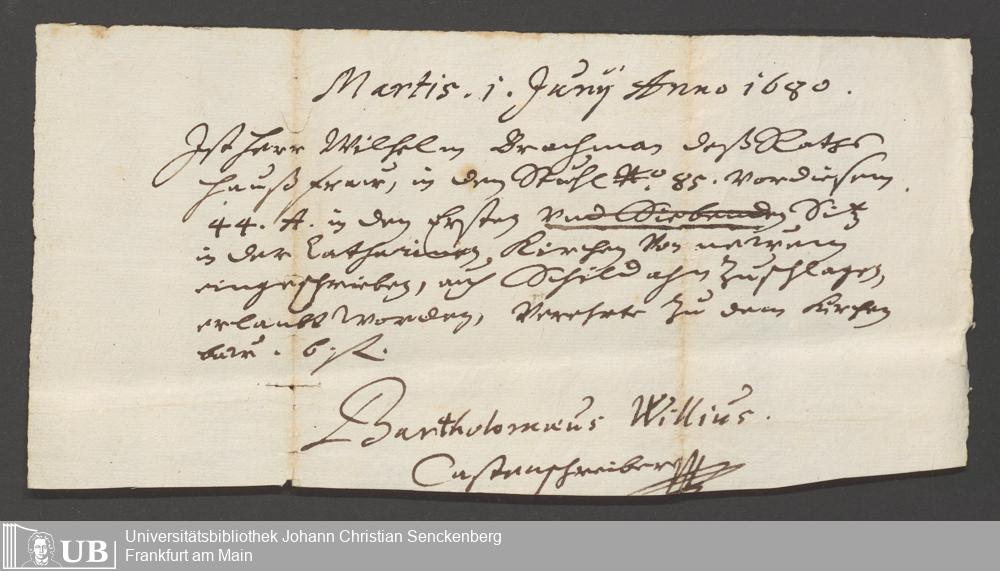 Martis. 1. Junÿ Anno 1680.
Ist Herr Wilhelm Brachman deß Raths
Hauß fraw, in den Stuhl No. 85. vor diesem
44. A. in den Ersten und Siebenden Sitz
in der Catharinen Kirchen Von newem
eingeschrieben, auch Schild ahn Zuschlagen,
erlaubt worden, Verehrte Zu dem Kirchen
baw. 6. fl.
Bartholomæus Willius.
Castenschreiber
UB
Universitätsbibliothek Johann Christian Senckenberg
Frankfurt am Main